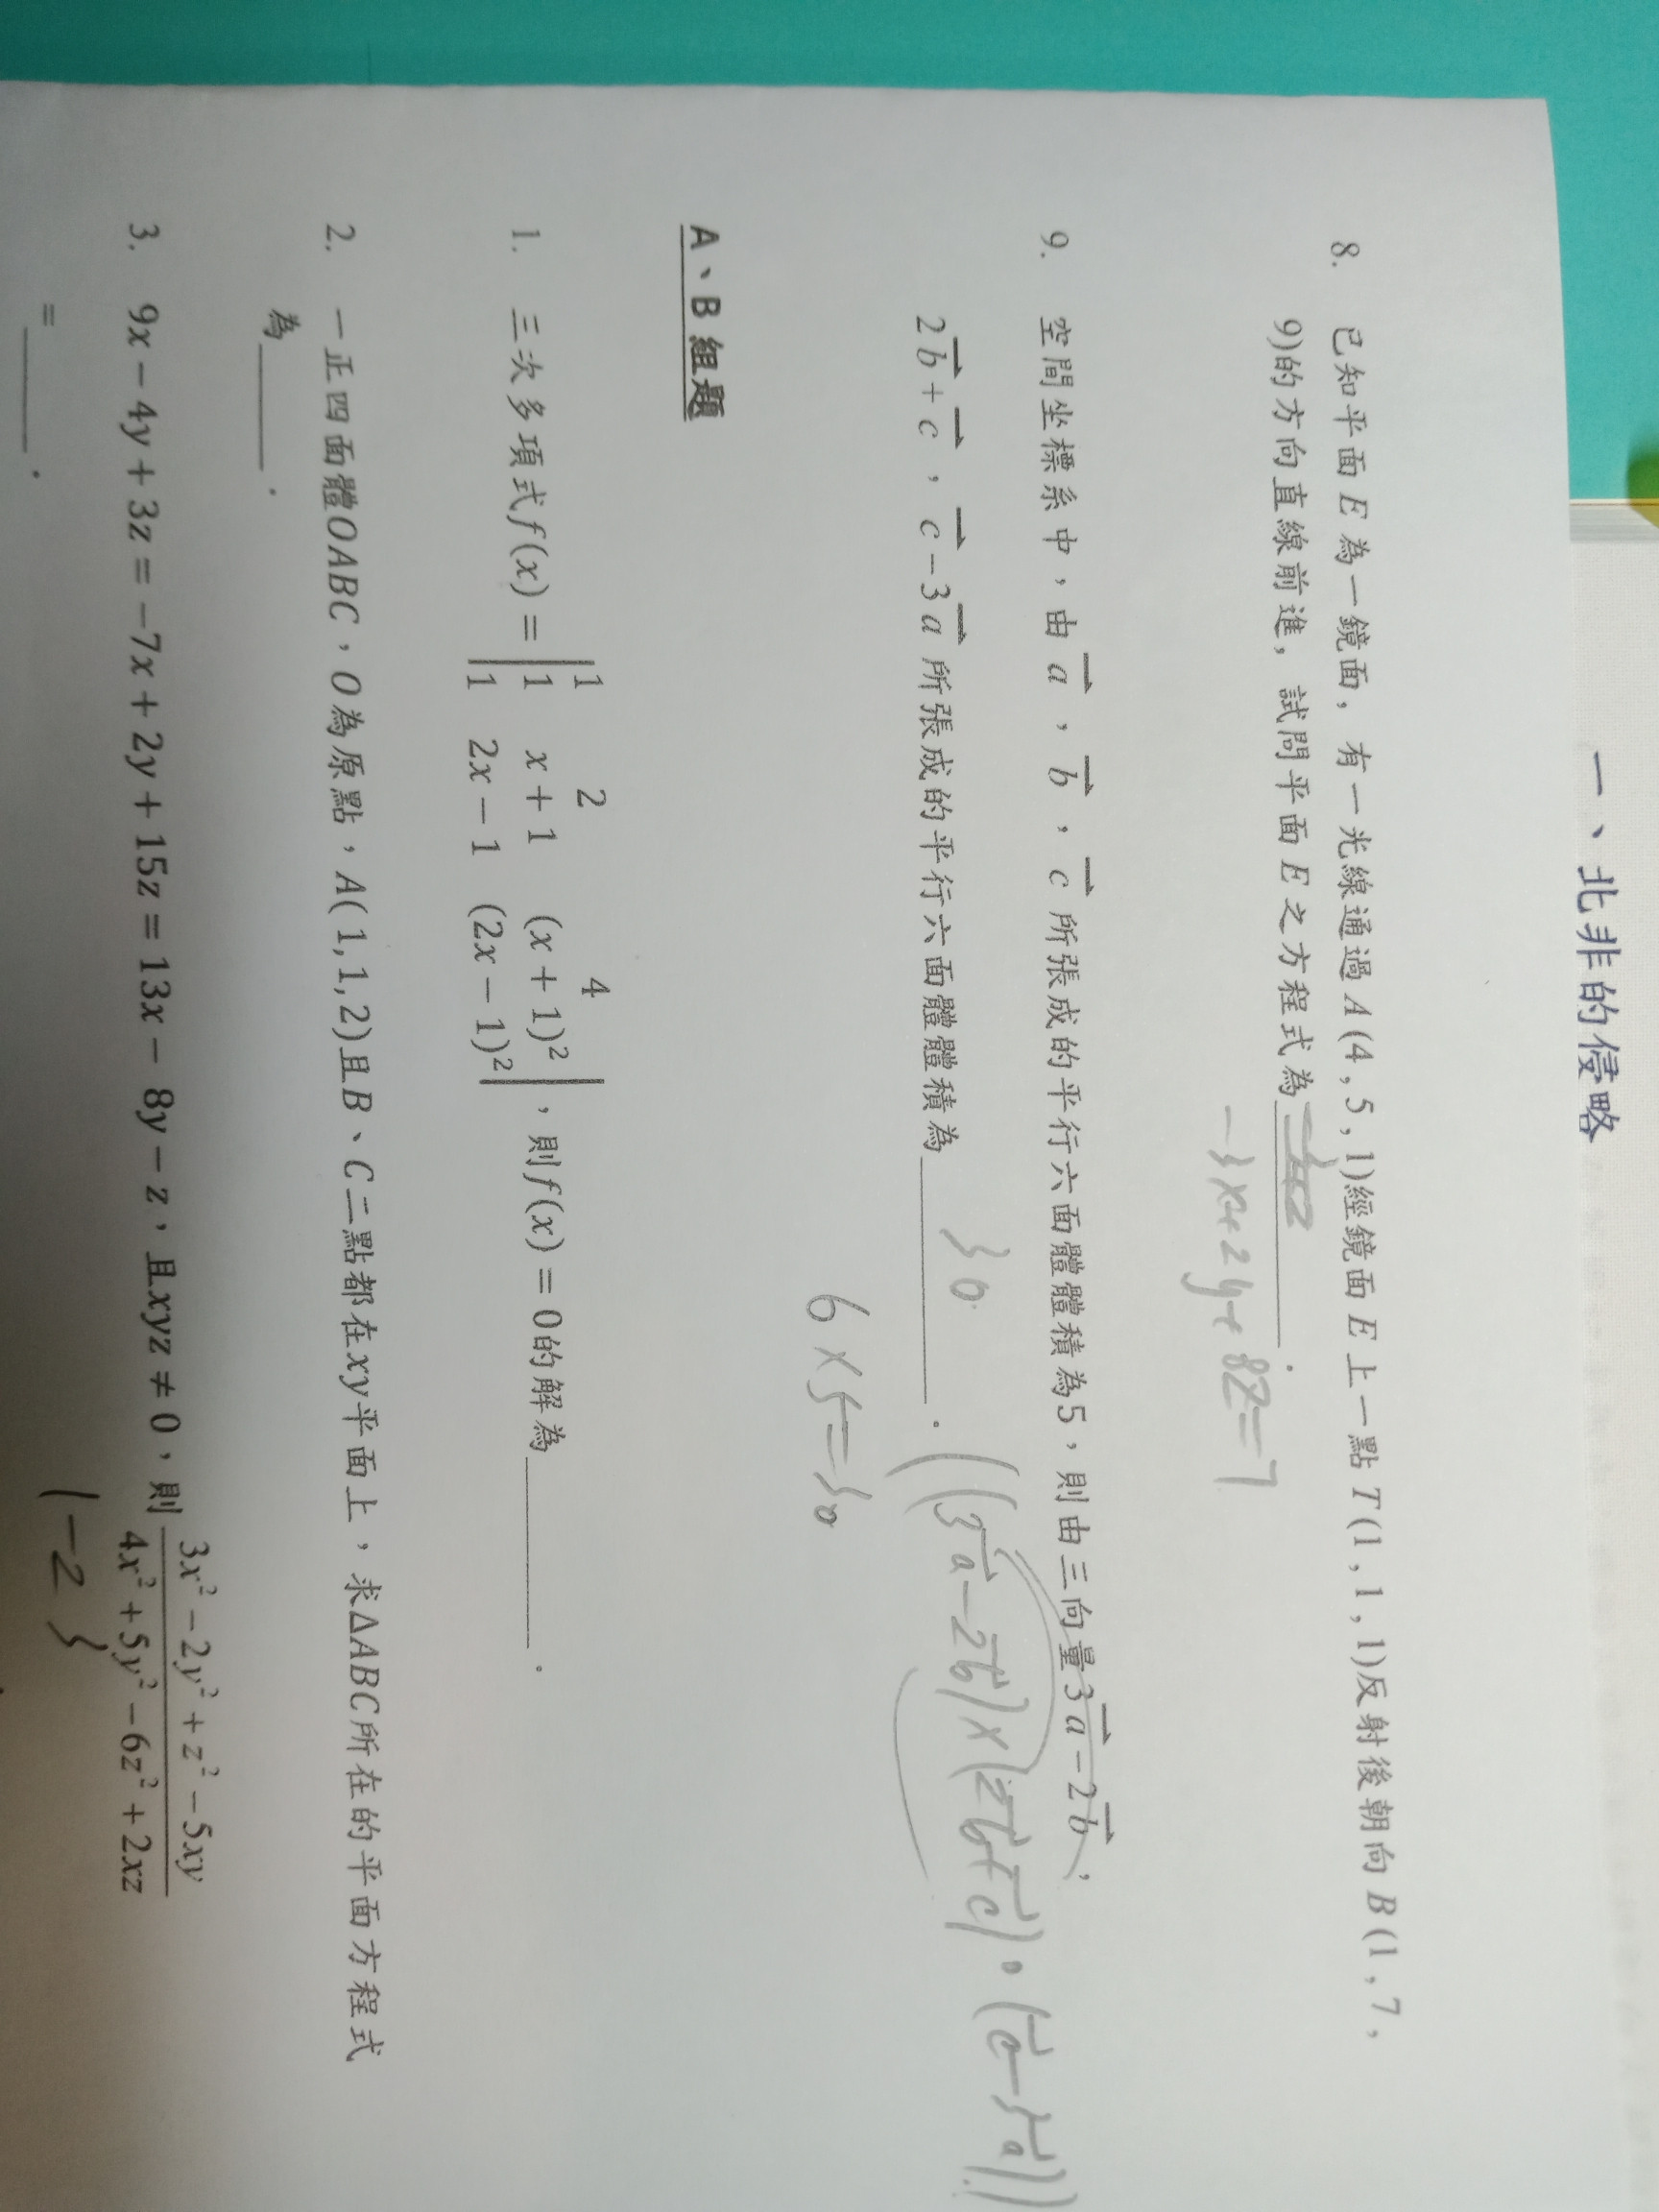 一、北非的侵略
8. 已知平面 E 為一鏡面，有一光線通過 A(4 , 5 , 1)經鏡面 E 上一點 T(1 , 1 , 1)反射後朝向 B(1 , 7 ,
9)的方向直線前進，試問平面 E 之方程式為________．
-3x+2y+8z=7
9. 空間坐標系中，由 a⃑，b⃑，c⃑ 所張成的平行六面體體積為5，則由三向量3a⃑-2b⃑，
2b⃑+c⃑，c⃑-3a⃑ 所張成的平行六面體體積為________．
30
((3a⃑-2b⃑)×(2b⃑+c⃑)·(c⃑-3a⃑))
6×5=30
A、B 組題
1. 三次多項式f(x) = |1 2 4
1 x+1 (x+1)²
1 2x-1 (2x-1)²|，則f(x) = 0的解為________．
2. 一正四面體OABC，O為原點，A(1,1,2)且B、C二點都在xy平面上，求ΔABC所在的平面方程式
為________．
3. 9x-4y+3z = -7x+2y+15z = 13x-8y-z，且xyz≠0，則 3x²-2y²+z²-5xy
4x²+5y²-6z²+2xz
= ________．
1 -2 3